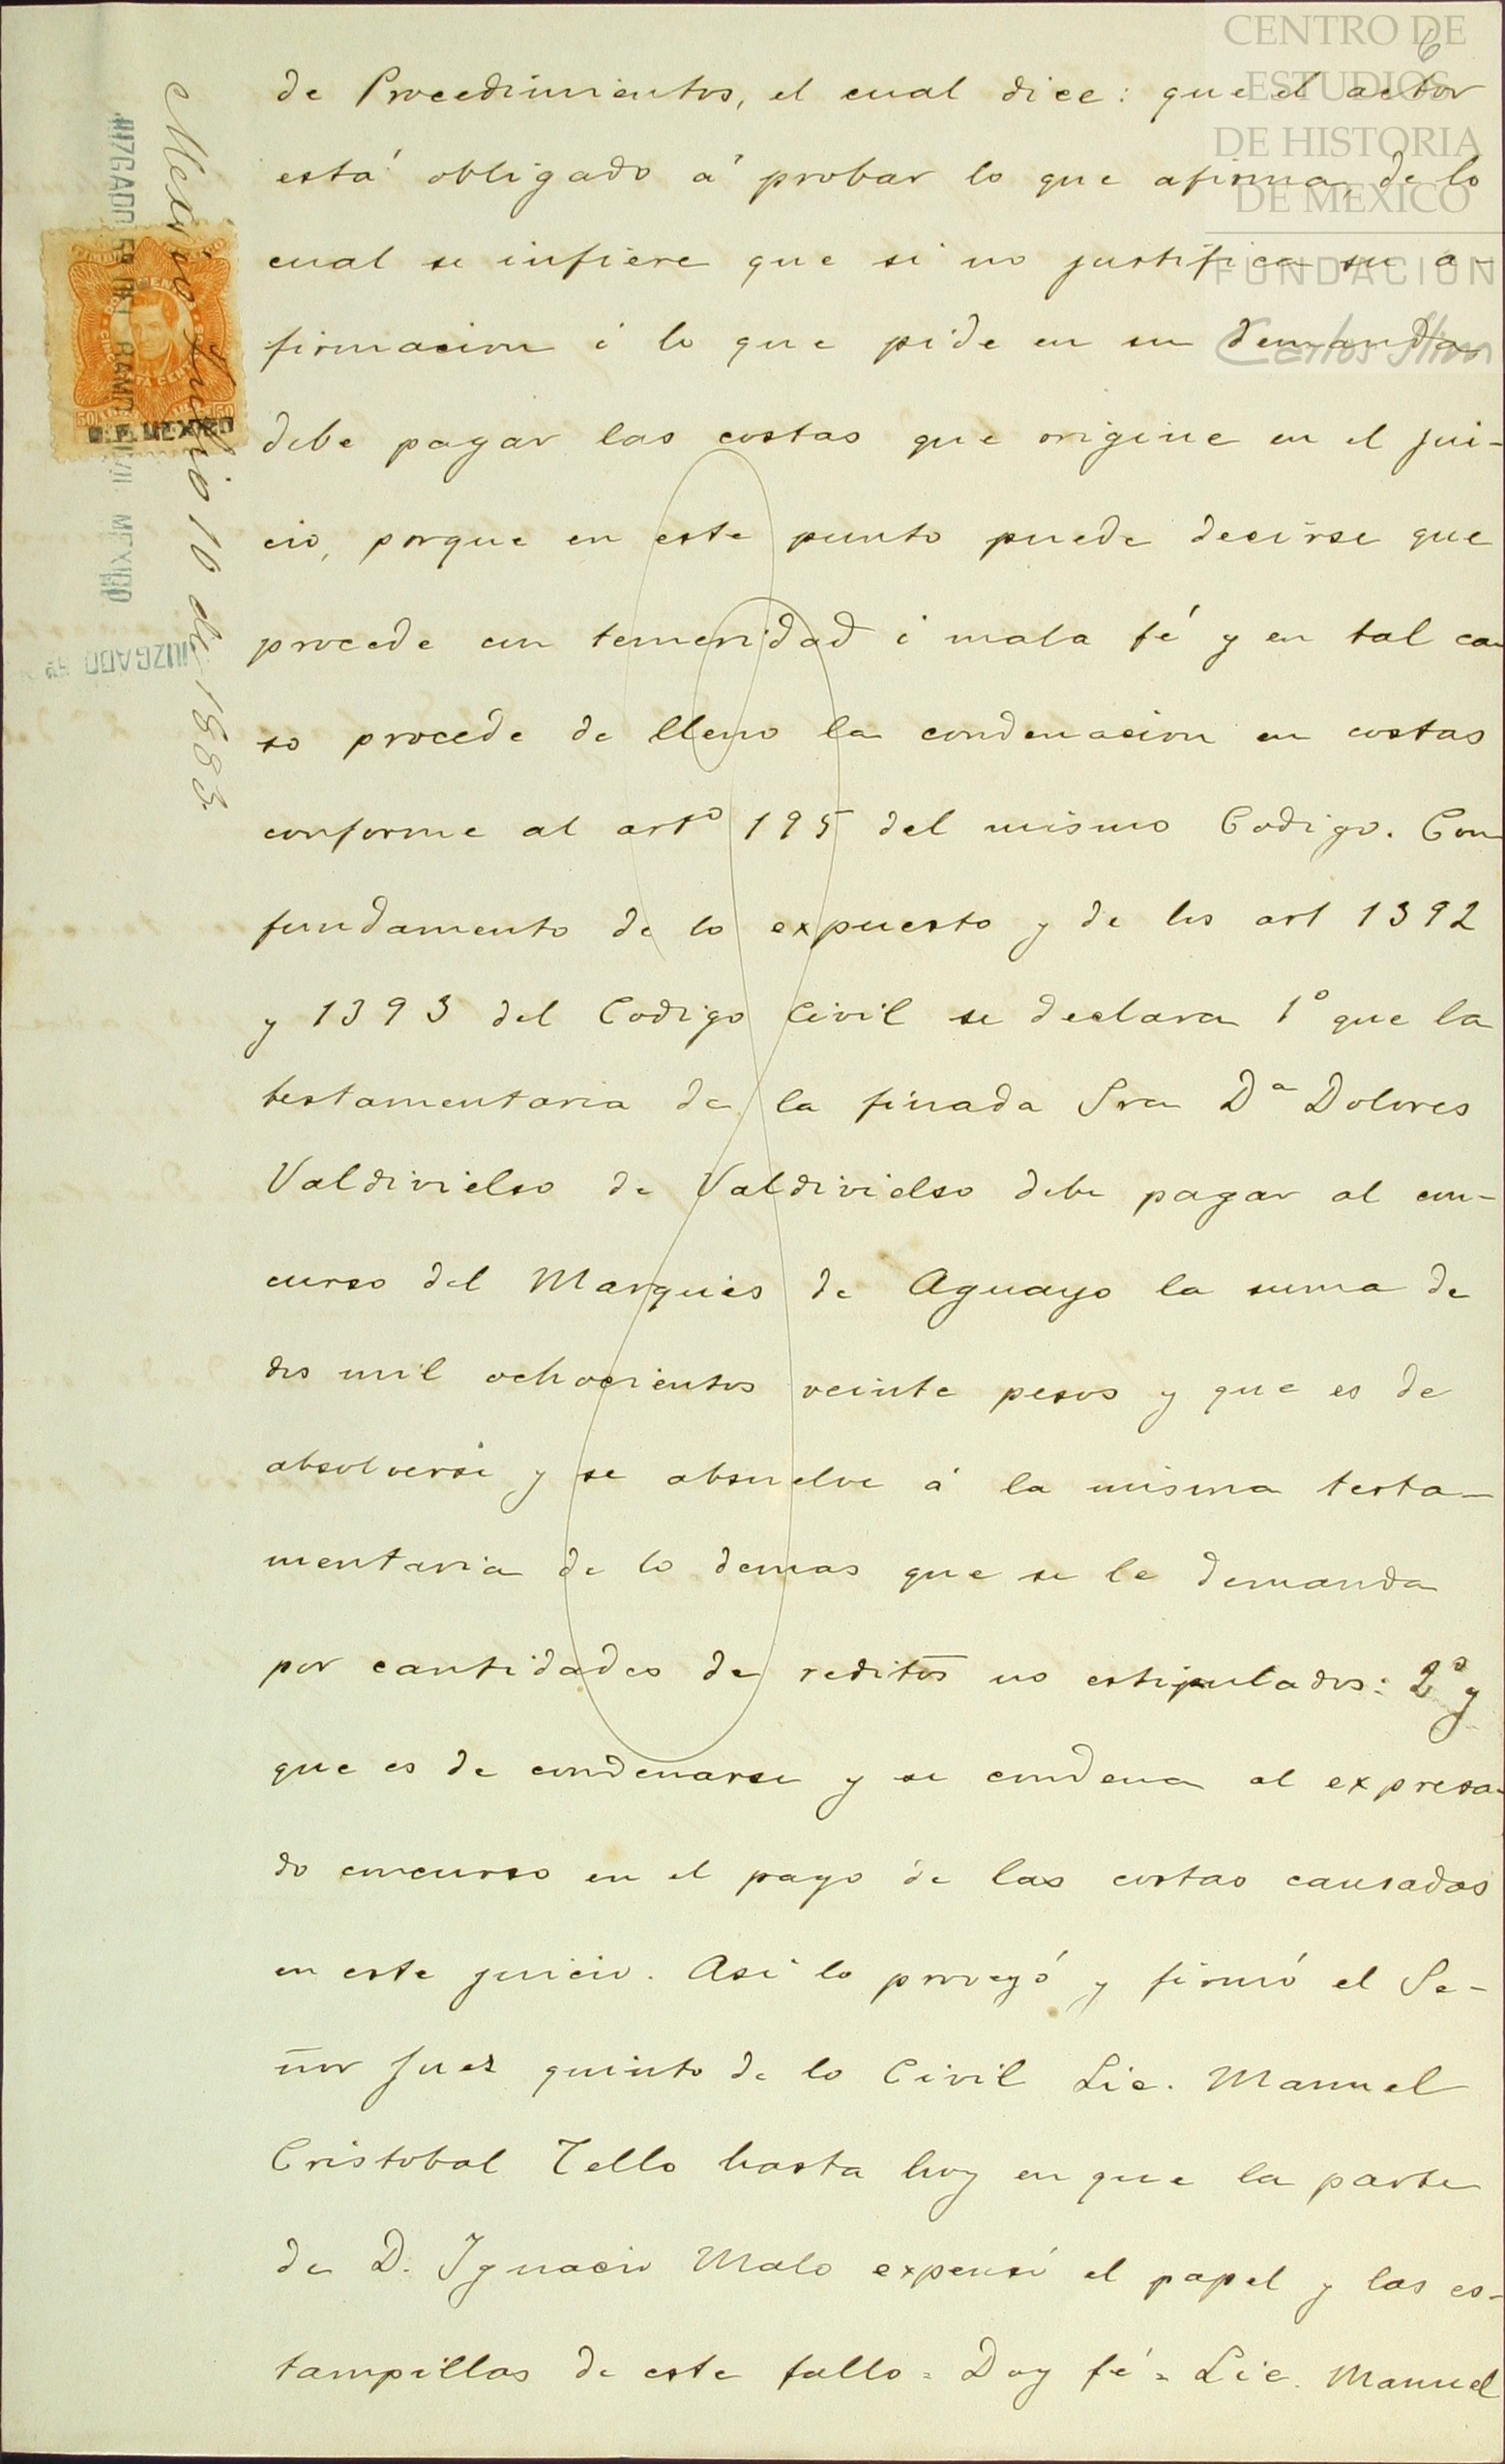 CENTRO DE
ESTUDIOS
DE HISTORIA
DE MEXICO
FUNDACION
Carlos Slim
6
de Procedimientos, el cual dice: que el actor
está obligado á probar lo que afirma, de lo
cual se infiere que si no justifica su a-
firmacion i lo que pide en su demanda
debe pagar las costas que origine en el jui-
cio, porque en este punto puede decirse que
procede con temeridad i mala fé y en tal ca
so procede de lleno la condenacion en costas
conforme al artº 195 del mismo Codigo. Con
fundamento de lo expuesto y de los art 1392
y 1393 del Codigo Civil se declara 1º que la
testamentaria de la finada Sra Dª Dolores
Valdivielso de Valdivielso debe pagar al con-
curso del Marques de Aguayo la suma de
dos mil ochocientos veinte pesos y que es de
absolverse y se absuelve á la misma testa-
mentaria de lo demas que se le demanda
por cantidades de reditos no estipulados: 2º y
que es de condenarse y se condena al expresa-
do concurso en el pago de las costas causadas
en este juicio. Asi lo proveyó y firmó el Se-
ñor Juez quinto de lo Civil Lic. Manuel
Cristobal Tello hasta hoy en que la parte
de D. Ignacio Malo expensó el papel y las es-
tampillas de este fallo = Doy fé = Lic. Manuel
Mexico Julio 10 de 1883
JUZGADO 5º DEL RAMO CIVIL MEXICO
JUZGADO 5º
D. F. MEXICO
50
50